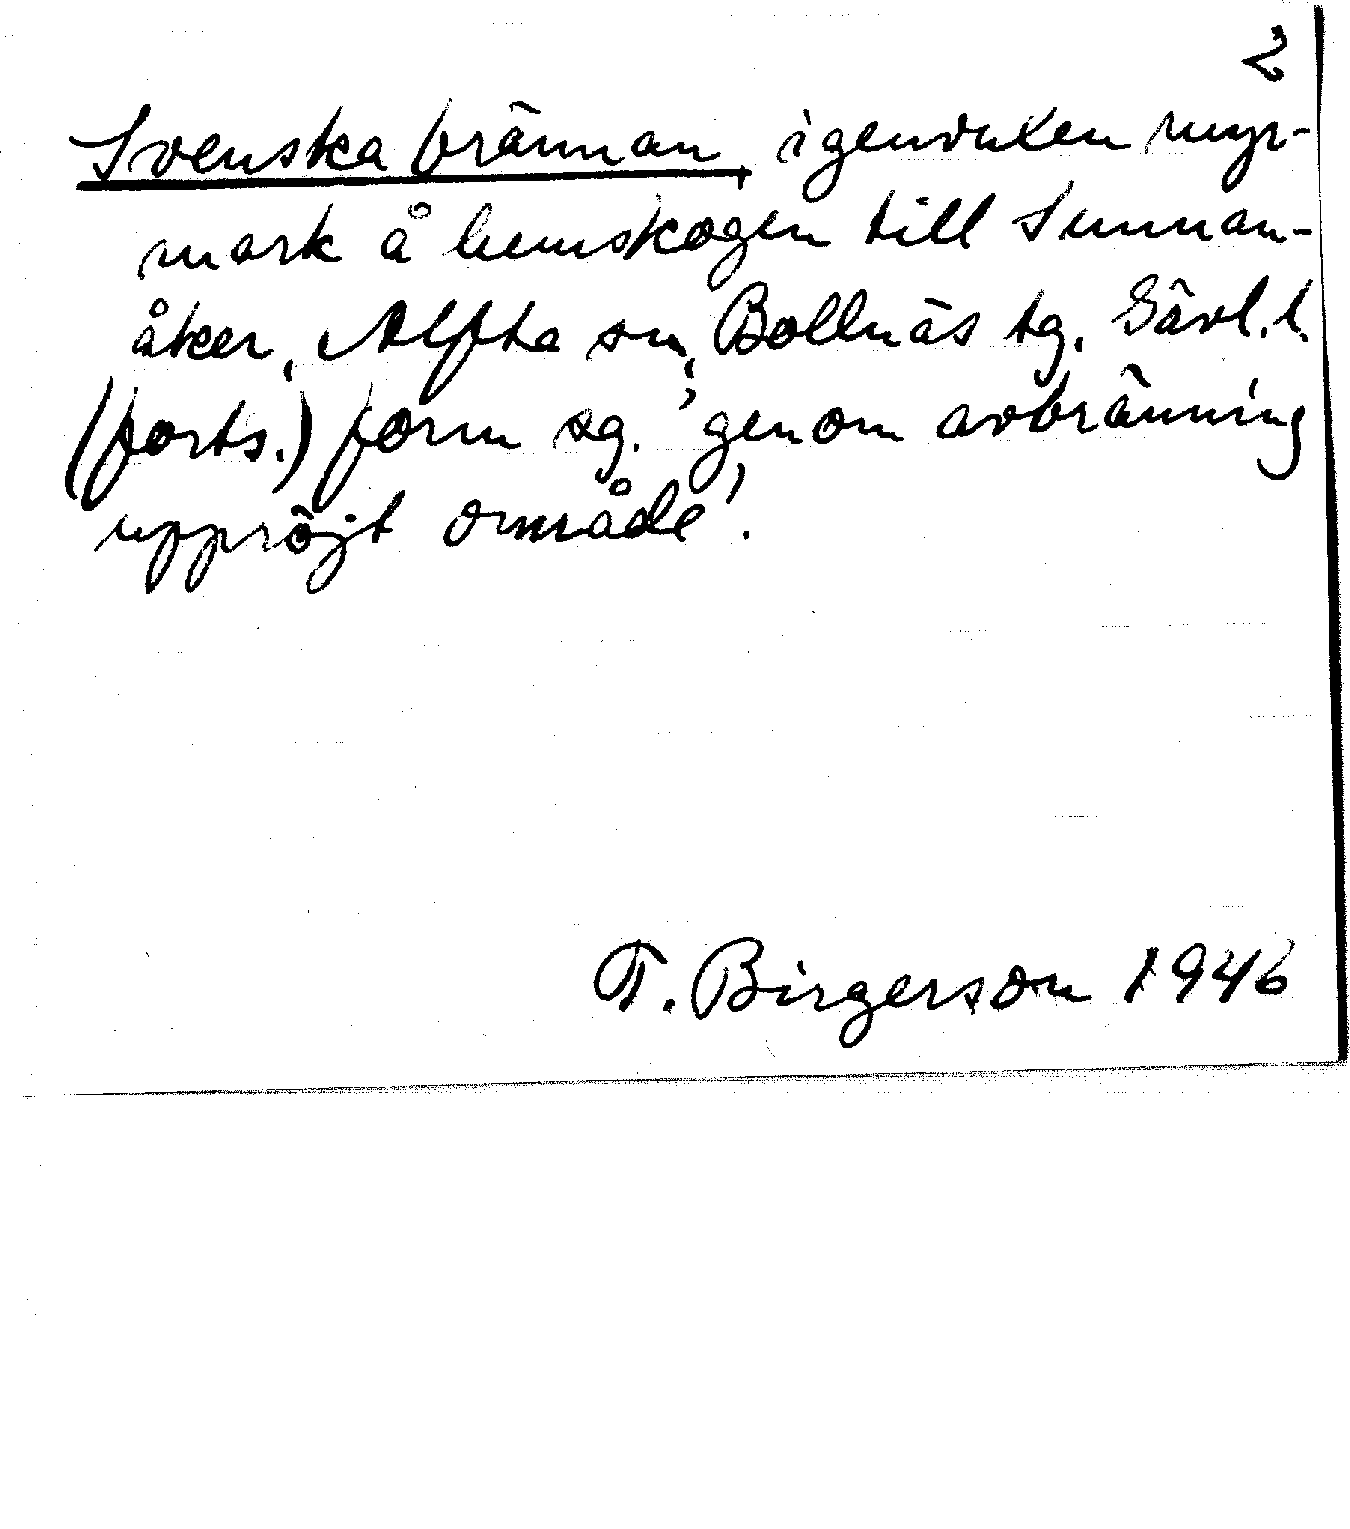 2
Svenska brännan, igenvuxen myr-
mark å hemskogen till Sunnan-
åker, Alfta sn, Bollnäs tg. Gävl. l.
(forts.) form sg. 'genom avbränning
uppröjt område'.
T. Birgerson 1946